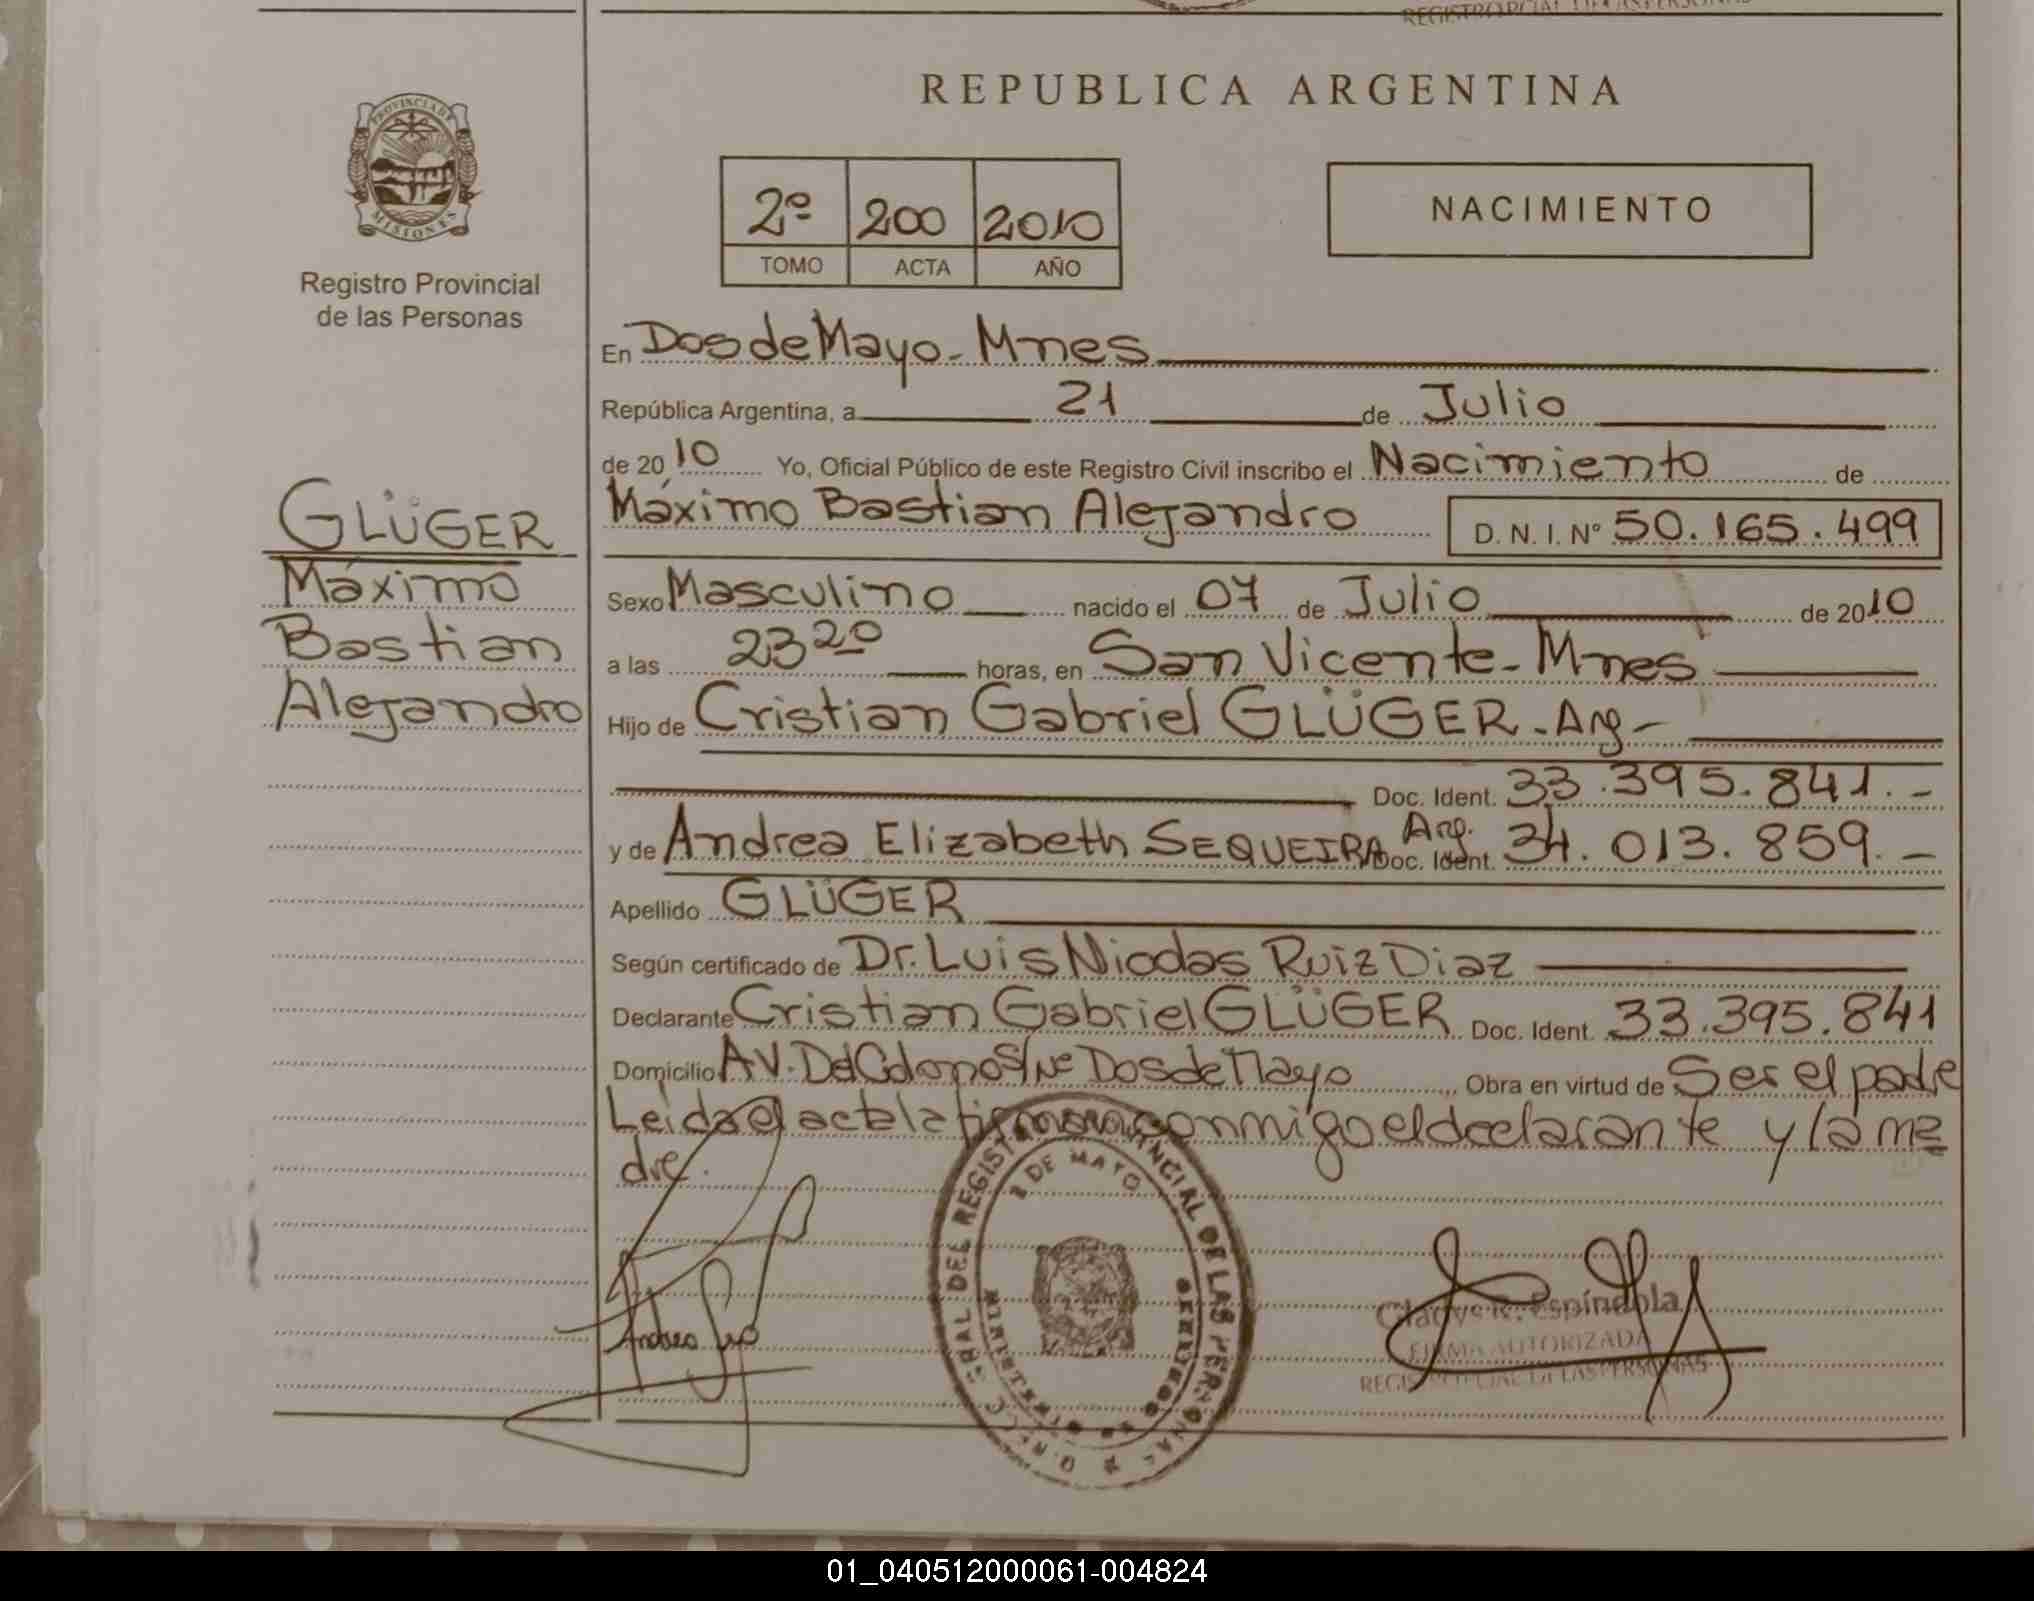 REGISTRO PCIAL DE LAS PERSONAS
REPUBLICA ARGENTINA
PROVINCIA DE
MISIONES
Registro Provincial
de las Personas
2º 200 2010
TOMO ACTA AÑO
NACIMIENTO
En Dos de Mayo - Mnes
República Argentina, a 21 de Julio
de 2010 Yo, Oficial Público de este Registro Civil inscribo el Nacimiento de
Máximo Bastian Alejandro D. N. I. Nº 50.165.499
GLÜGER
Máximo
Bastian
Alejandro
Sexo Masculino nacido el 07 de Julio de 2010
a las 23 20 horas, en San Vicente - Mnes
Hijo de Cristian Gabriel GLÜGER - Arg -
Doc. Ident. 33.395.841.-
y de Andrea Elizabeth SEQUEIRA Arg. Doc. Ident. 34.013.859.-
Apellido GLÜGER
Según certificado de Dr. Luis Nicolas Ruiz Diaz
Declarante Cristian Gabriel GLÜGER Doc. Ident. 33.395.841
Domicilio AV. Del Colono S/Nº Dos de Mayo Obra en virtud de Ser el padre
Leida el acta la firman conmigo el declarante y la ma
dre.
SRAL DEL REGISTRO PROVINCIAL DE LAS PERSONAS
2 DE MAYO
Andrea
Gladys R. Espíndola
FIRMA AUTORIZADA
REGISTRO PCIAL DE LAS PERSONAS
01_040512000061-004824